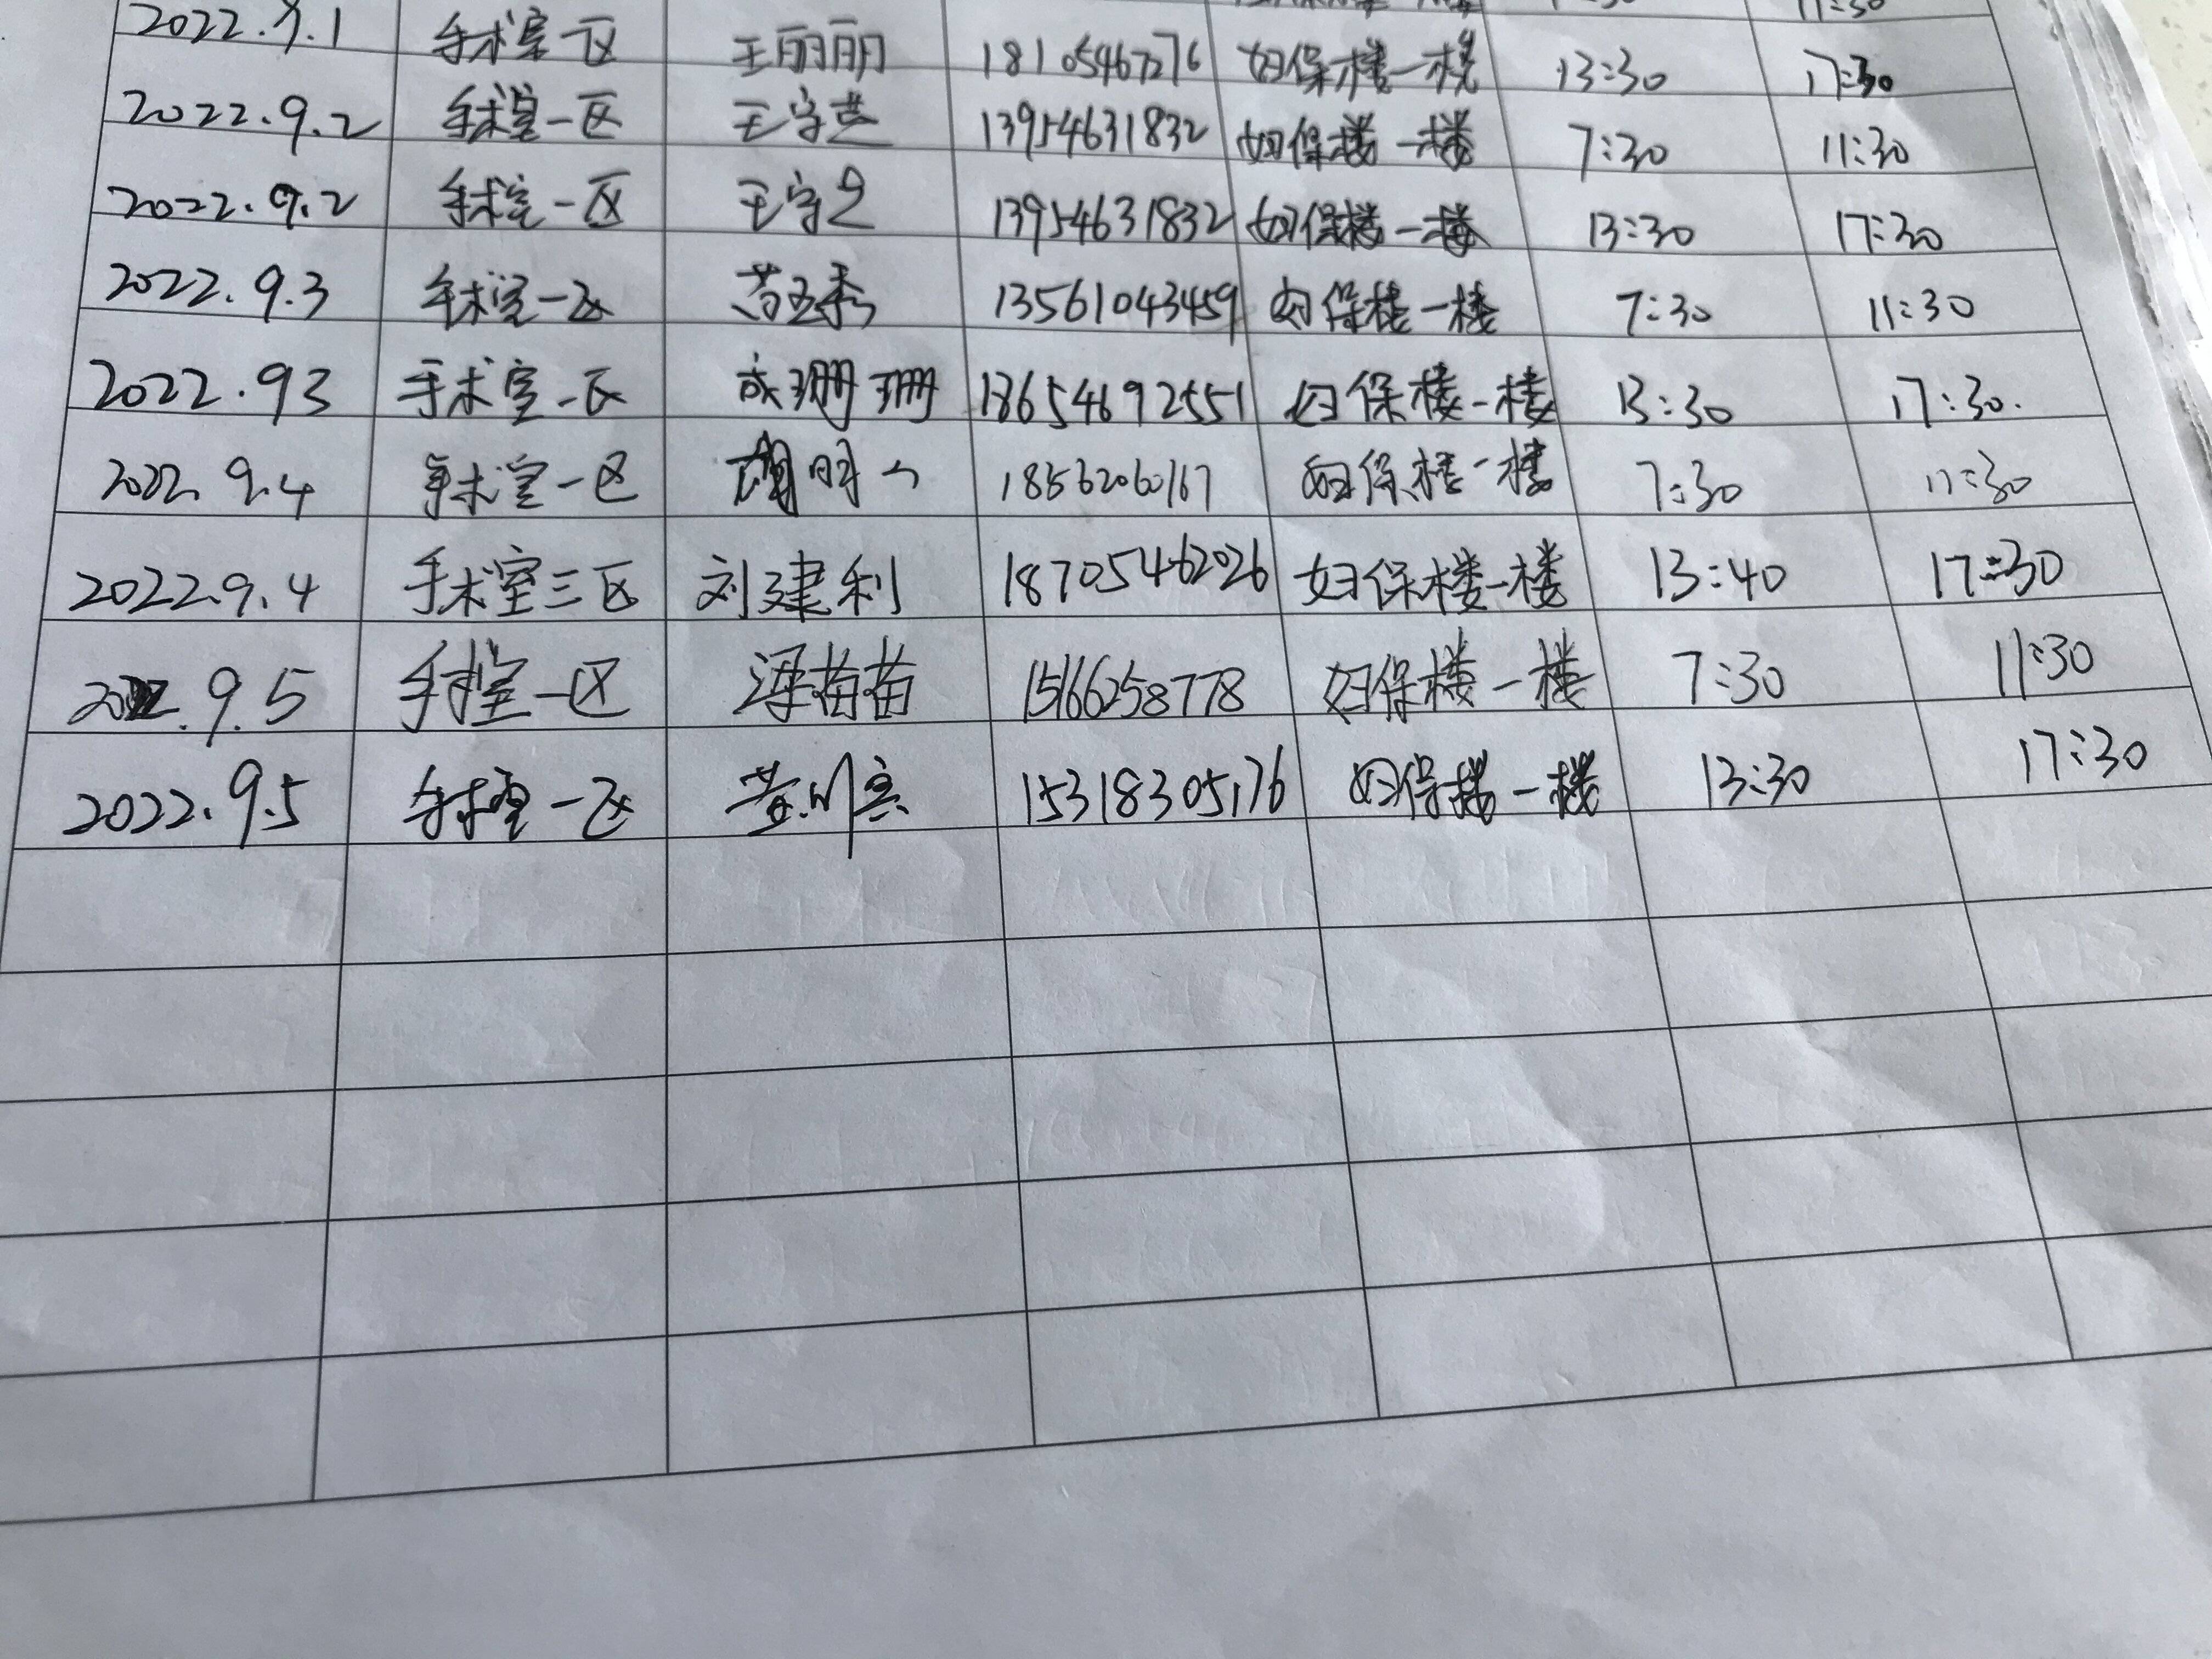 11:30
2022.9.1 手术室一区 王丽丽 18105467276 妇保楼一楼 13:30 17:30
2022.9.2 手术室一区 13954631832 妇保楼一楼 7:30 11:30
2022.9.2 手术室一区 13954631832 妇保楼一楼 13:30 17:30
2022.9.3 手术室一区 13561043459 妇保楼一楼 7:30 11:30
2022.93 手术室一区 成珊珊 18654692551 妇保楼一楼 13:30 17:30.
2022.9.4 手术室一区 18562060167 妇保楼一楼 7:30 11:30
2022.9.4 手术室三区 刘建利 18705462026 妇保楼一楼 13:40 17:30
2022.9.5 手术室一区 梁苗苗 15166258778 妇保楼一楼 7:30 11:30
2022.9.5 手术室一区 15318305176 妇保楼一楼 13:30 17:30